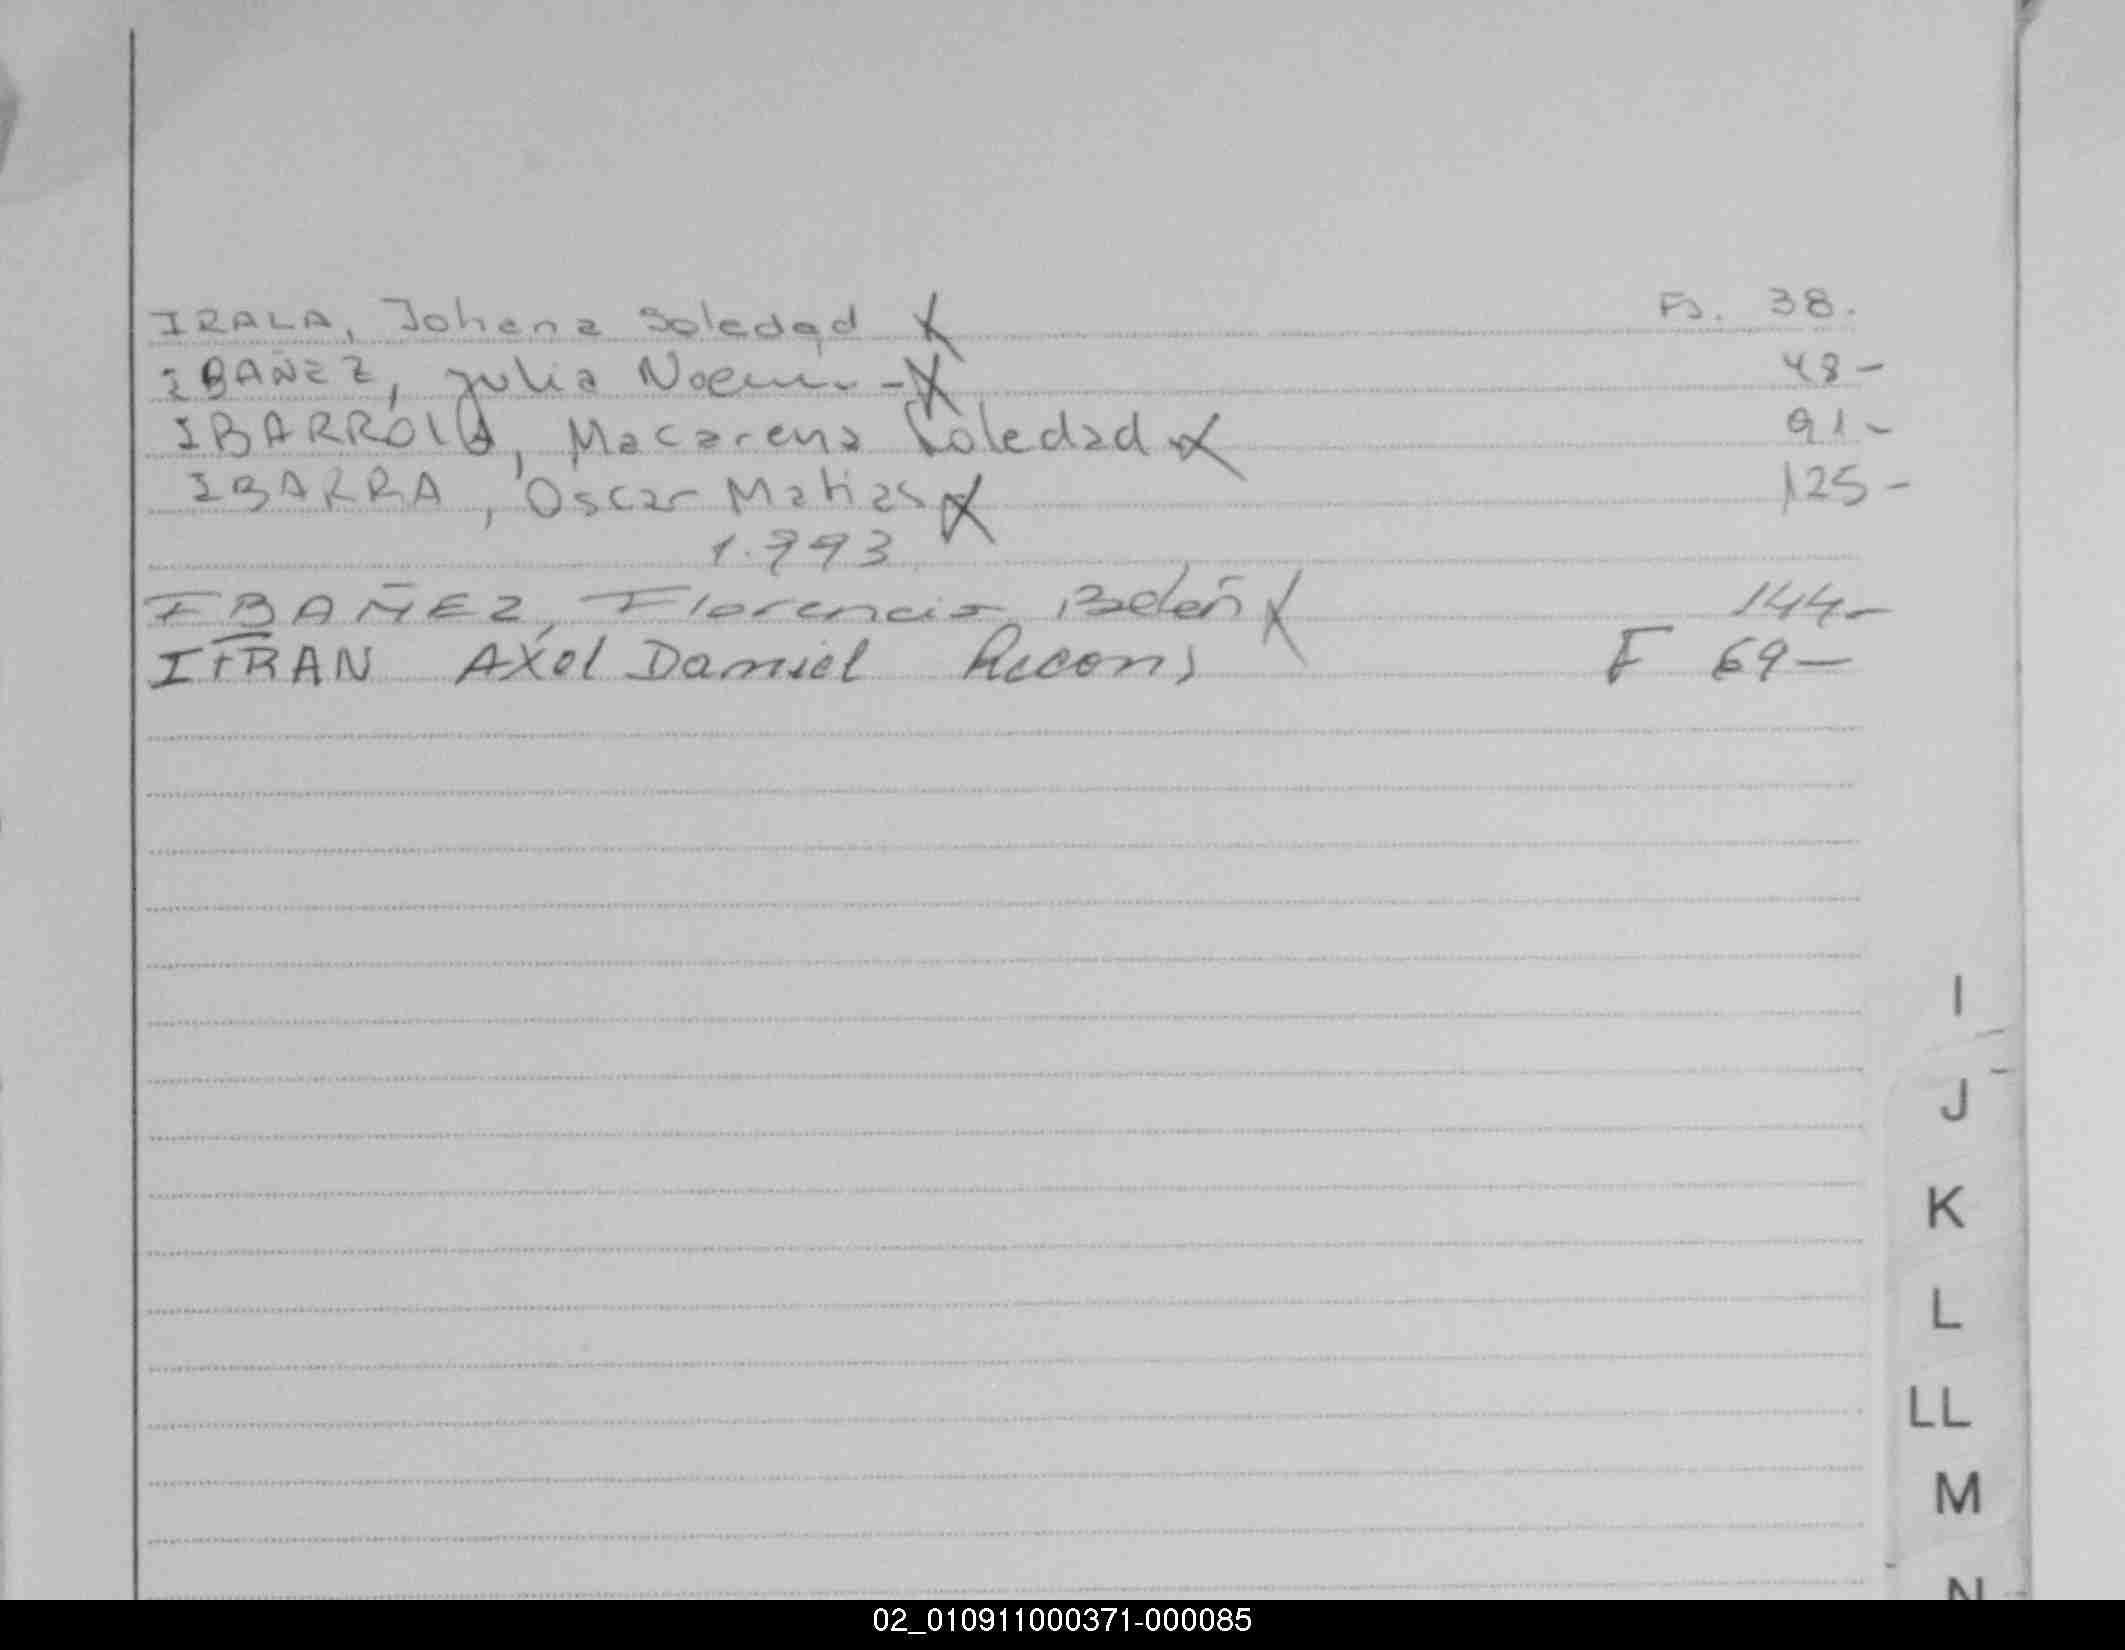 IRALA, Johena Soledad X Fs. 38.
IBAÑEZ, Julia Noemi - X 48-
IBARROLA, Macarena Soledad X 91-
IBARRA, Oscar Matias X 125-
1.993
IBAÑEZ, Florencia Belén X 144-
ITRAN Axel Daniel Recons F 69-
I
J
K
L
LL
M
N
02_010911000371-000085